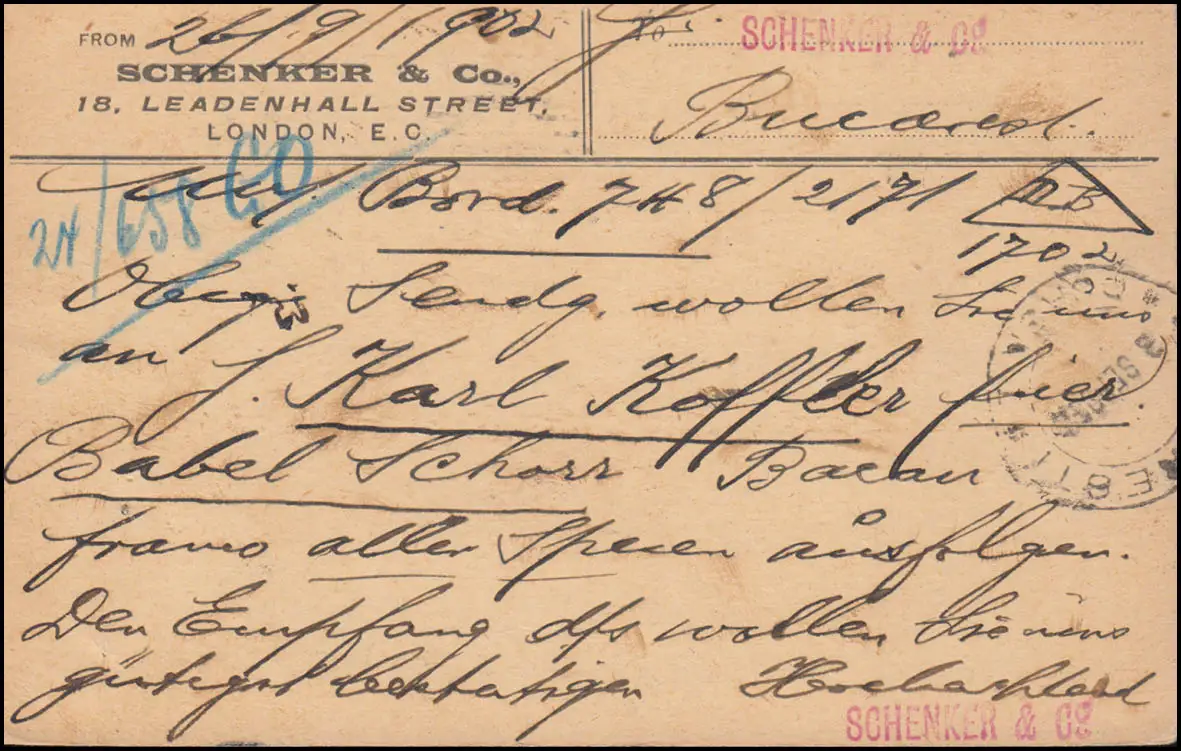 FROM 26/9/1902 To: SCHENKER & Co
SCHENKER & Co.,
18, LEADENHALL STREET,
LONDON, E.C.
Bucarest.
24/658 GO
Bord. 748/2171 MB
1702
Sendg. wollen Sie uns
an J. Karl Koffler hier.
Babel Schorr Bacau
franco aller Spesen ausfolgen.
Den Empfang dfs wollen Sie uns
gütigst bestatigen Hochachtend
SCHENKER & Co